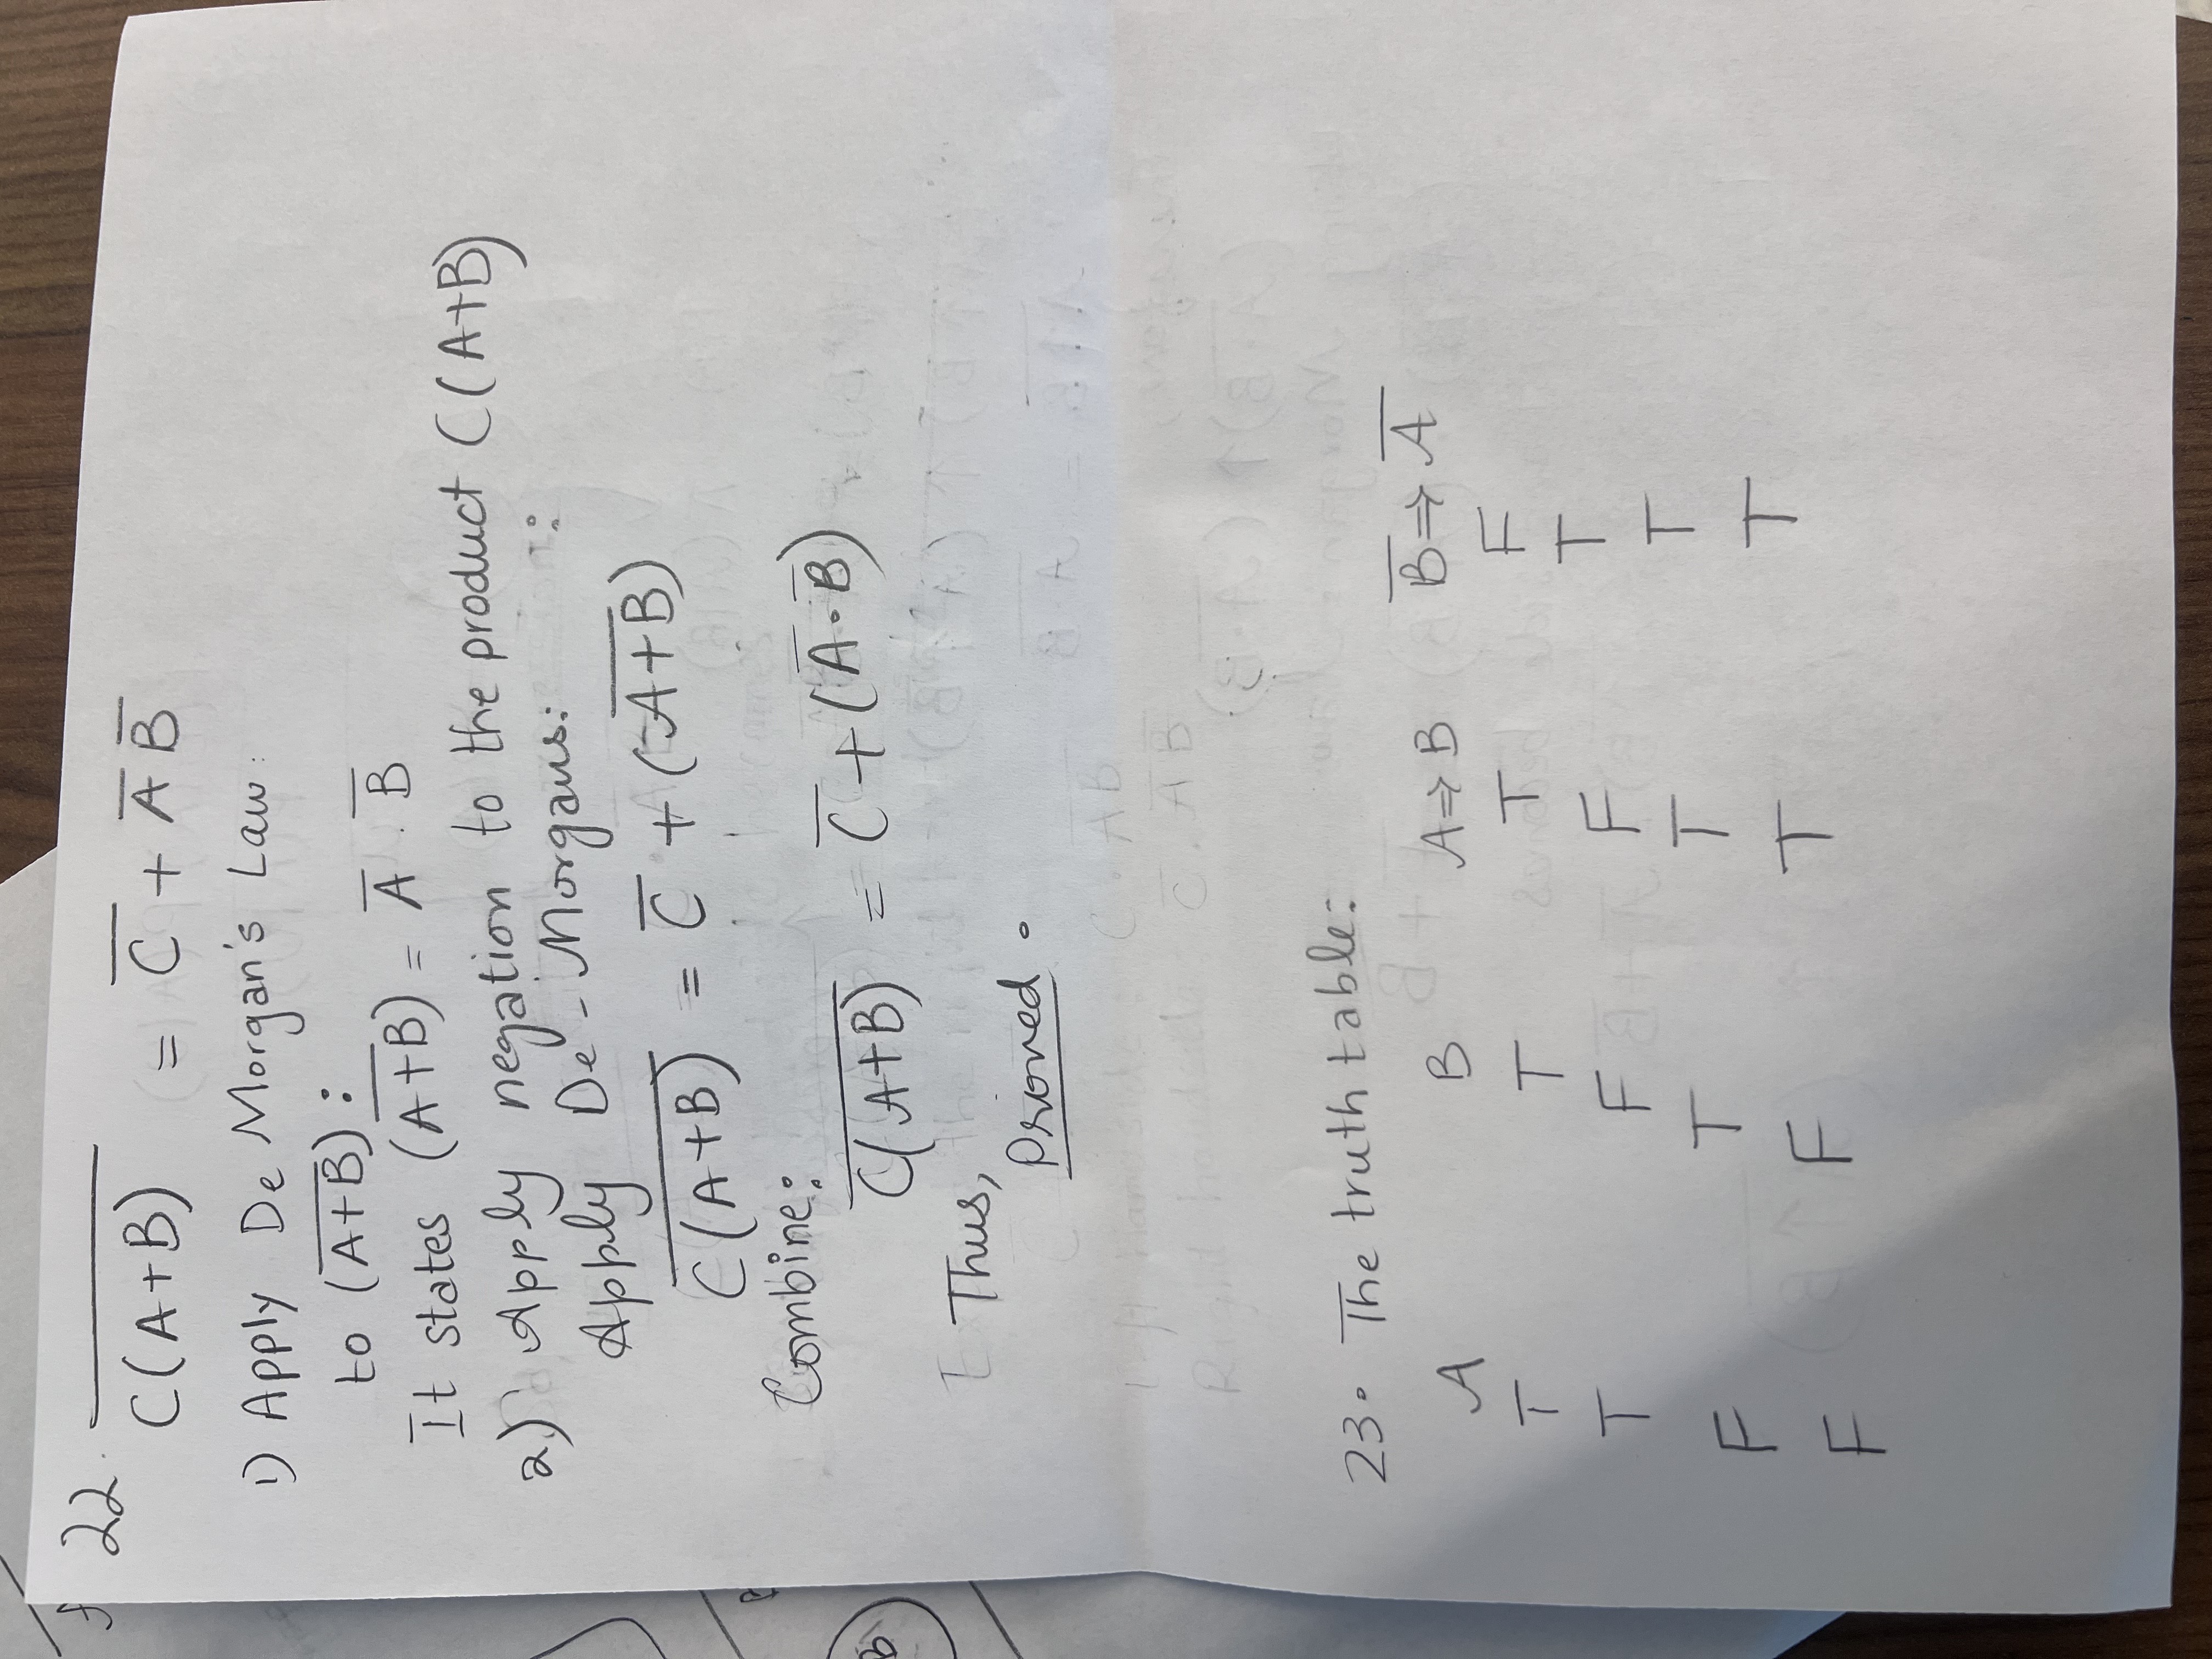 22. \overline{C(A+B)} = \overline{C} + \overline{A} \overline{B}
1) Apply De Morgan's Law:
to (\overline{A+B}):
It states (\overline{A+B}) = \overline{A} . \overline{B}
2) Apply negation to the product C(A+B)
:
Apply De-Morgans:
\overline{C(A+B)} = \overline{C} + (\overline{A+B})
Combine:
\overline{C(A+B)} = \overline{C} + (\overline{A}·\overline{B})
Thus,
Proved.
C · \overline{AB}
Right handside: \overline{C} . \overline{A} \overline{B}
23. The truth table:
A B A⇒B \overline{B}⇒\overline{A}
T T T F
T F F T
F T T T
F F T T
B